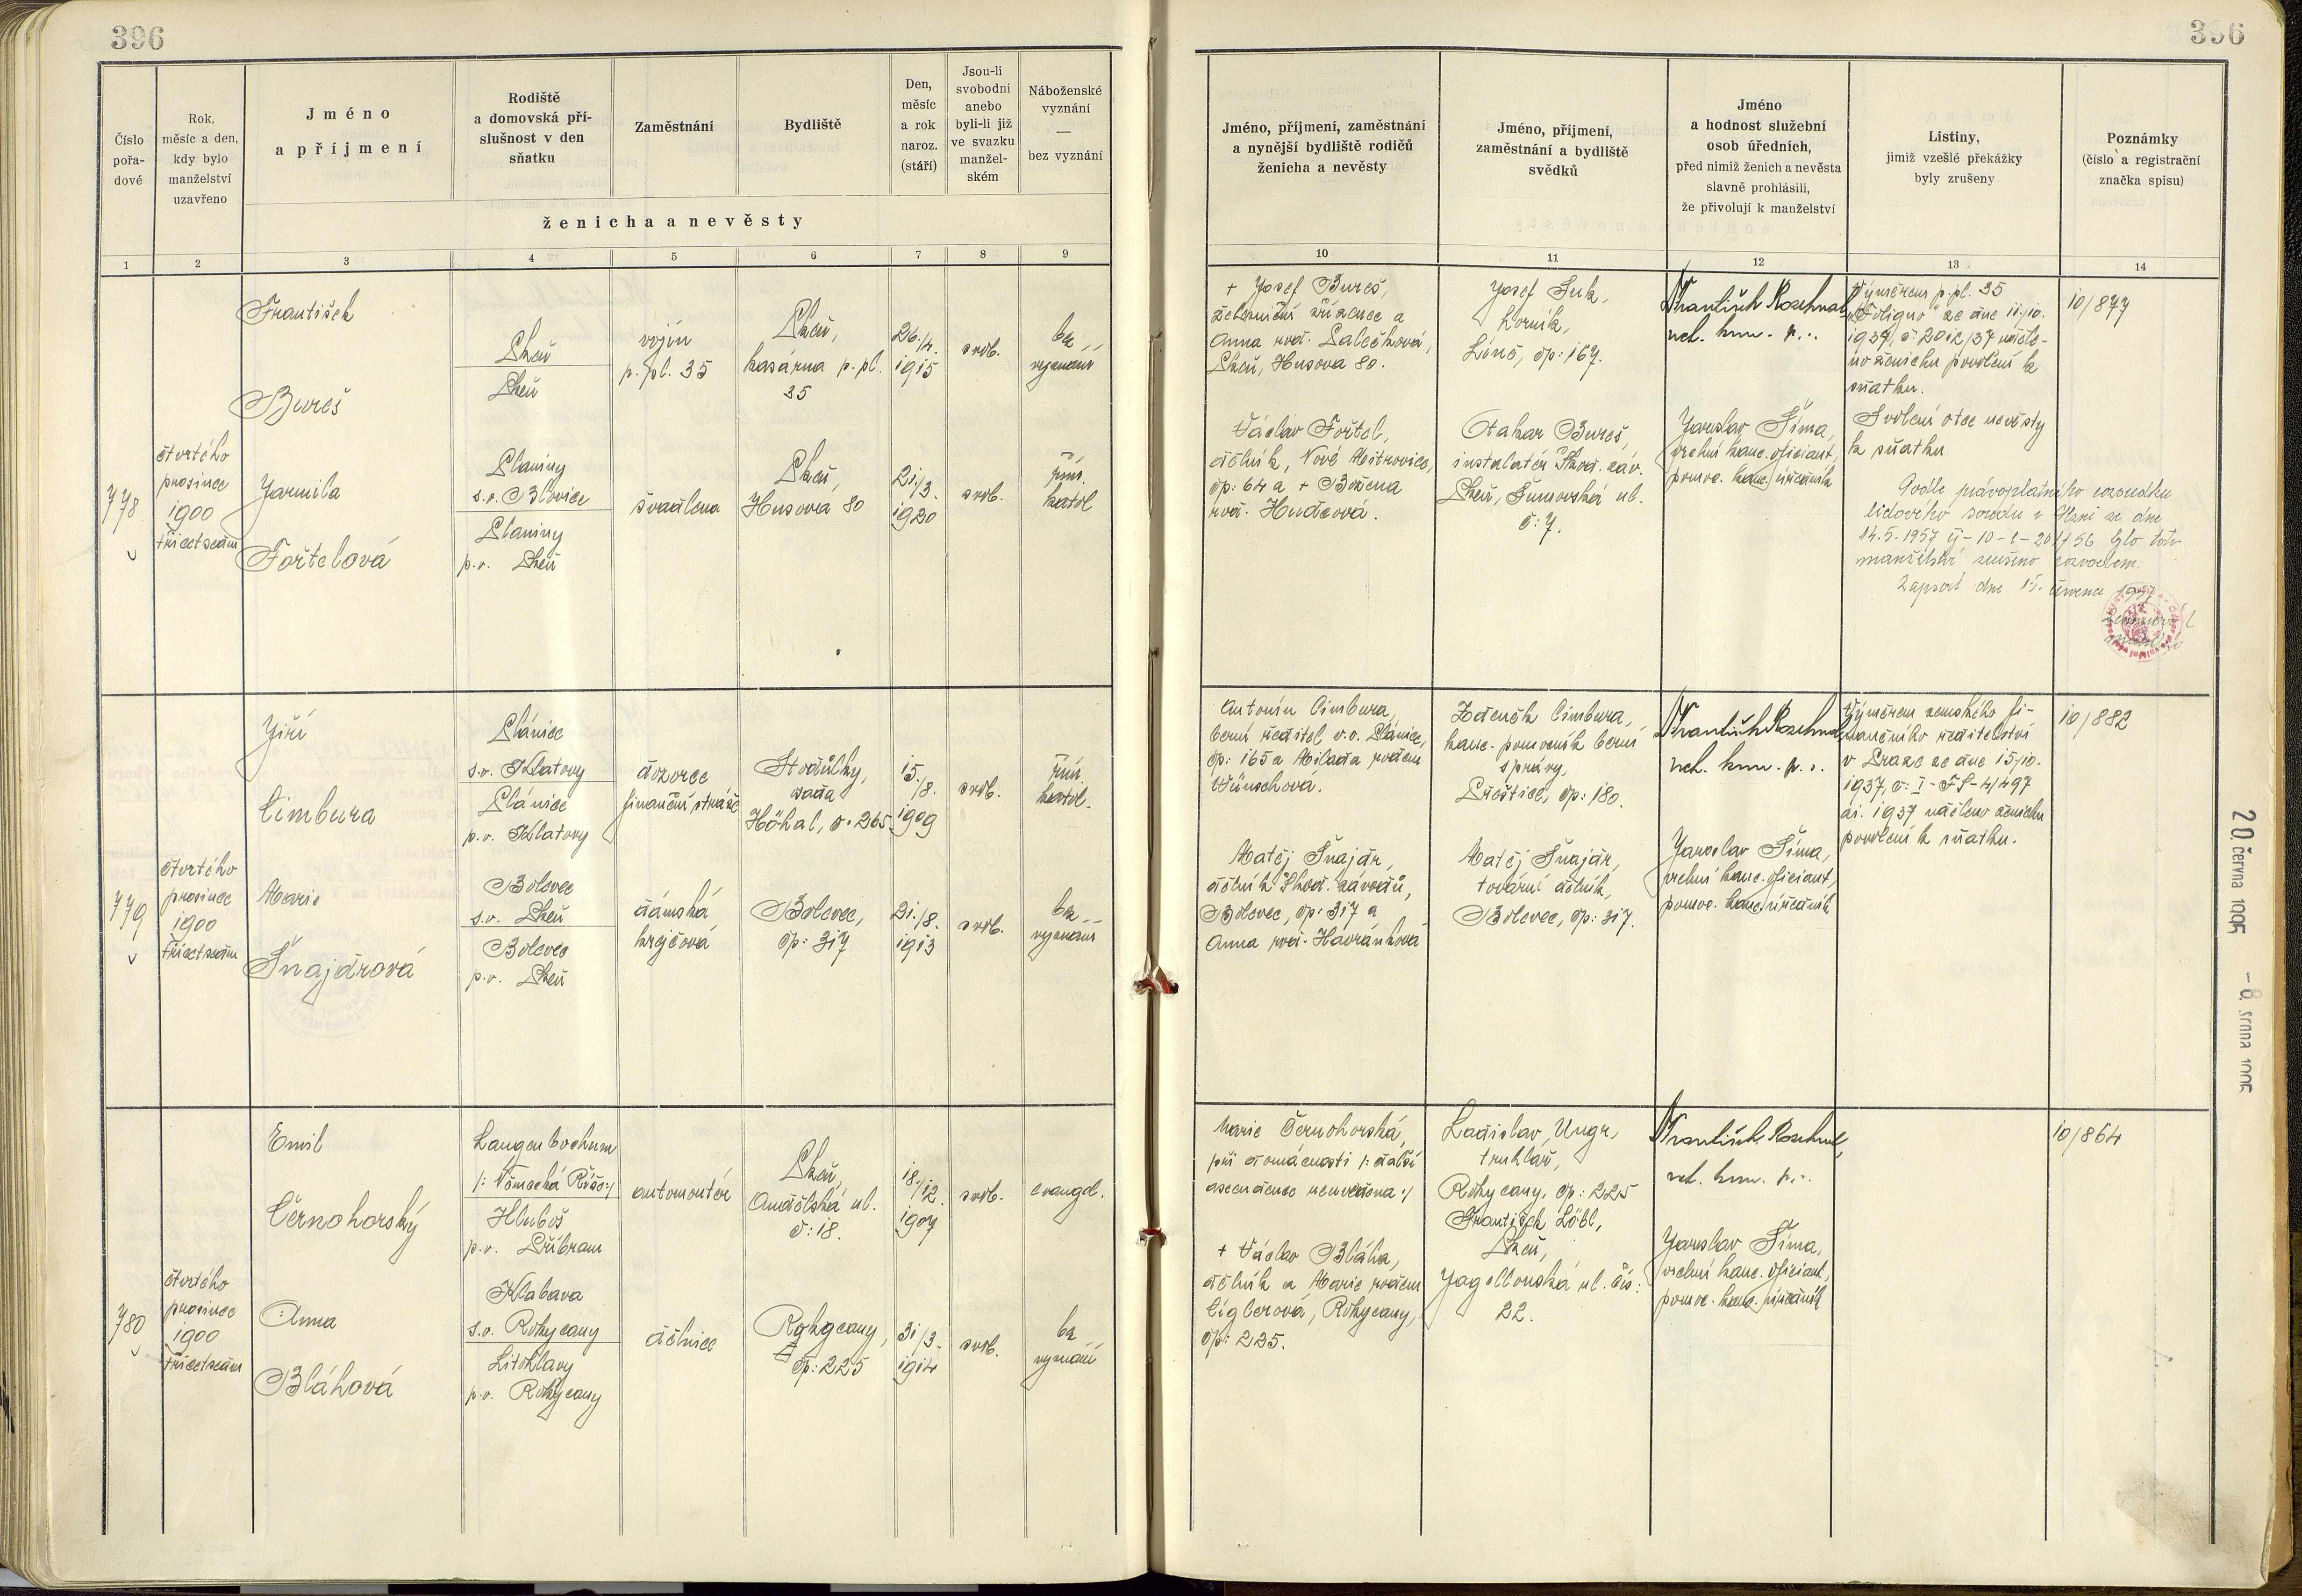 396
Číslo
pořa-
dové
Rok,
měsíc a den,
kdy bylo
manželství
uzavřeno
Jméno
a příjmení
Rodiště
a domovská pří-
slušnost v den
sňatku
Zaměstnání
Bydliště
Den,
měsíc
a rok
naroz.
(stáří)
Jsou-li
svobodni
anebo
byli-li již
ve svazku
manžel-
ském
Náboženské
vyznání
—
bez vyznání
ženicha a nevěsty
1 2 3 4 5 6 7 8 9
778
čtvrtého
prosince
1900
třicetsedm
František
Bureš
Plzeň
Plzeň
vojín
p. pl. 35
Plzeň,
kasárna p. pl.
35
26./4.
1915
svob.
bez
vyznání
Jarmila
Fořtelová
Planiny
s.o. Blovice
Planiny
p.o. Plzeň
švadlena
Plzeň,
Husova 80
21./3.
1920
svob.
řím.
katol
779
čtvrtého
prosince
1900
třicetsedm
Jiří
Cimbura
Plánice
s.o. Klatovy
Plánice
p.o. Klatovy
dozorce
finanční stráže
Stodůlky,
osada
Höhal, č. 265
15./8.
1909
svob.
řím.
katol.
Marie
Šnajdrová
Bolevec
s.o. Plzeň
Bolevec
p.o. Plzeň
dámská
krejčová
Bolevec,
čp: 317
21./8.
1913
svob.
bez
vyznání
780
čtvrtého
prosince
1900
třicetsedm
Emil
Černohorský
Langenbochum
/: Německá Říše :/
Hluboš
p.o. Příbram
automontér
Plzeň,
Andělská ul.
č: 18.
18./12.
1907
svob.
evangel.
Anna
Bláhová
Klabava
s.o. Rokycany
Litohlavy
p.o. Rokycany
dělnice
Rokycany,
čp: 225
31/3.
1914
svob.
bez
vyznání
396
Jméno, příjmení, zaměstnání
a nynější bydliště rodičů
ženicha a nevěsty
Jméno, příjmení,
zaměstnání a bydliště
svědků
Jméno
a hodnost služební
osob úředních,
před nimiž ženich a nevěsta
slavně prohlásili,
že přivolují k manželství
Listiny,
jimiž vzešlé překážky
byly zrušeny
Poznámky
(číslo a registrační
značka spisu)
10 11 12 13 14
+ Josef Bureš,
železniční zřízenec a
Anna roz. Palečková,
Plzeň, Husova 80.
Josef Suk,
horník,
Líně, čp: 167.
František
Výměrem p. pl. 35
„Foligno" ze dne 11./10.
1937, č: 2012/37 uděle-
no ženichu povolení k
sňatku.
10/877
Václav Fořtel,
dělník, Nové Mitrovice,
čp: 64 a + Božena
roz. Hudcová.
Otakar Bureš,
instalatér Škod. záv.
Plzeň, Šumavská ul.
č: 7.
Jaroslav Šíma,
vrchní kanc. oficiant,
pomoc. kanc. úředník
Svolení otce nevěsty
k sňatku
Podle právoplatného rozsudku
lidového soudu v Plzni ze dne
14.5.1957 bylo toto
manželství zrušeno rozvodem.
Zapsal dne 15. července 1957
Antonín Cimbura,
berní ředitel v.v. Plánice,
čp: 165 a Milada rozen.
Wünschová.
Zdeněk Cimbura,
kanc. pomocník berní
správy,
Přeštice, čp: 180.
František
Výměrem zemského fi-
nančního ředitelství
v Praze ze dne 15/10.
1937, č: I-FS-4/497
ai. 1937 uděleno ženichu
povolení k sňatku.
10/882
Matěj Šnajdr,
dělník Škod. závodů,
Bolevec, čp: 317 a
Anna roz. Havránková
Matěj Šnajdr,
tovární dělník,
Bolevec, čp: 317.
Jaroslav Šíma,
vrchní kanc. oficiant,
pomoc. kanc. úředník
Marie Černohorská,
při domácnosti /: další
ascendence neuvedena :/
Ladislav Ungr,
truhlář,
Rokycany, čp: 225
František
10/864
+ Václav Bláha,
dělník a Marie rozen.
Cíglerová, Rokycany,
čp: 225.
František Löbl,
Plzeň,
Jagellonská ul. čís:
22.
Jaroslav Šíma,
vrchní kanc. oficiant,
pomoc. kanc. úředník
20. června 1995
- 8. srpna 1995